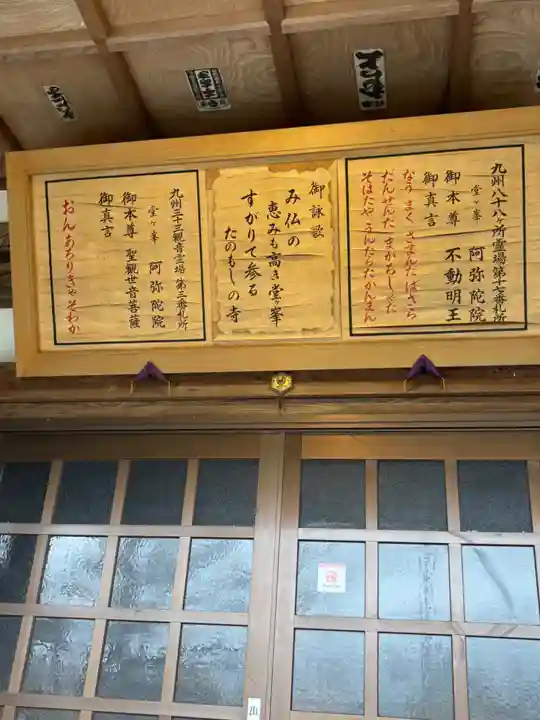 九州八十八ヶ所霊場第十七番札所
堂ヶ峯 阿弥陀院
御本尊 不動明王
御真言
なうまく さまんだ ばさら
だんせんだ まかろしゃだ
そはたや うんたらたかんまん
御詠歌
み仏の
恵みも高き堂ヶ峯
すがりて参る
たのもしの寺
九州三十三観音霊場 第三番札所
堂ヶ峯 阿弥陀院
御本尊 聖観世音菩薩
御真言
おん あろりきゃ そわか